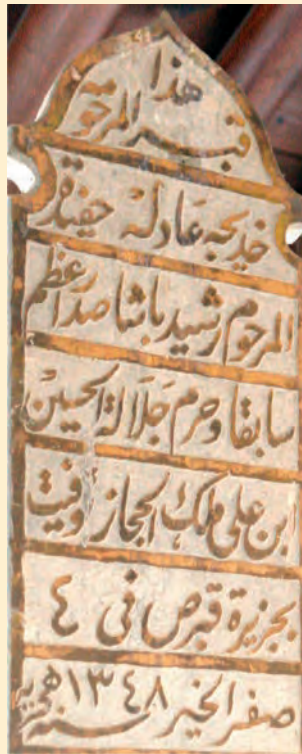 هذا
قبر المرحومة
خديجه عادله حفيدة
المرحوم رشيد باشا صدر اعظم
سابقا وحرم جلالة الحسين
ابن علي ملك الحجاز توفيت
بجزيرة قبرص في ٤
صفر الخير سنه ١٣٤٨ هجريه